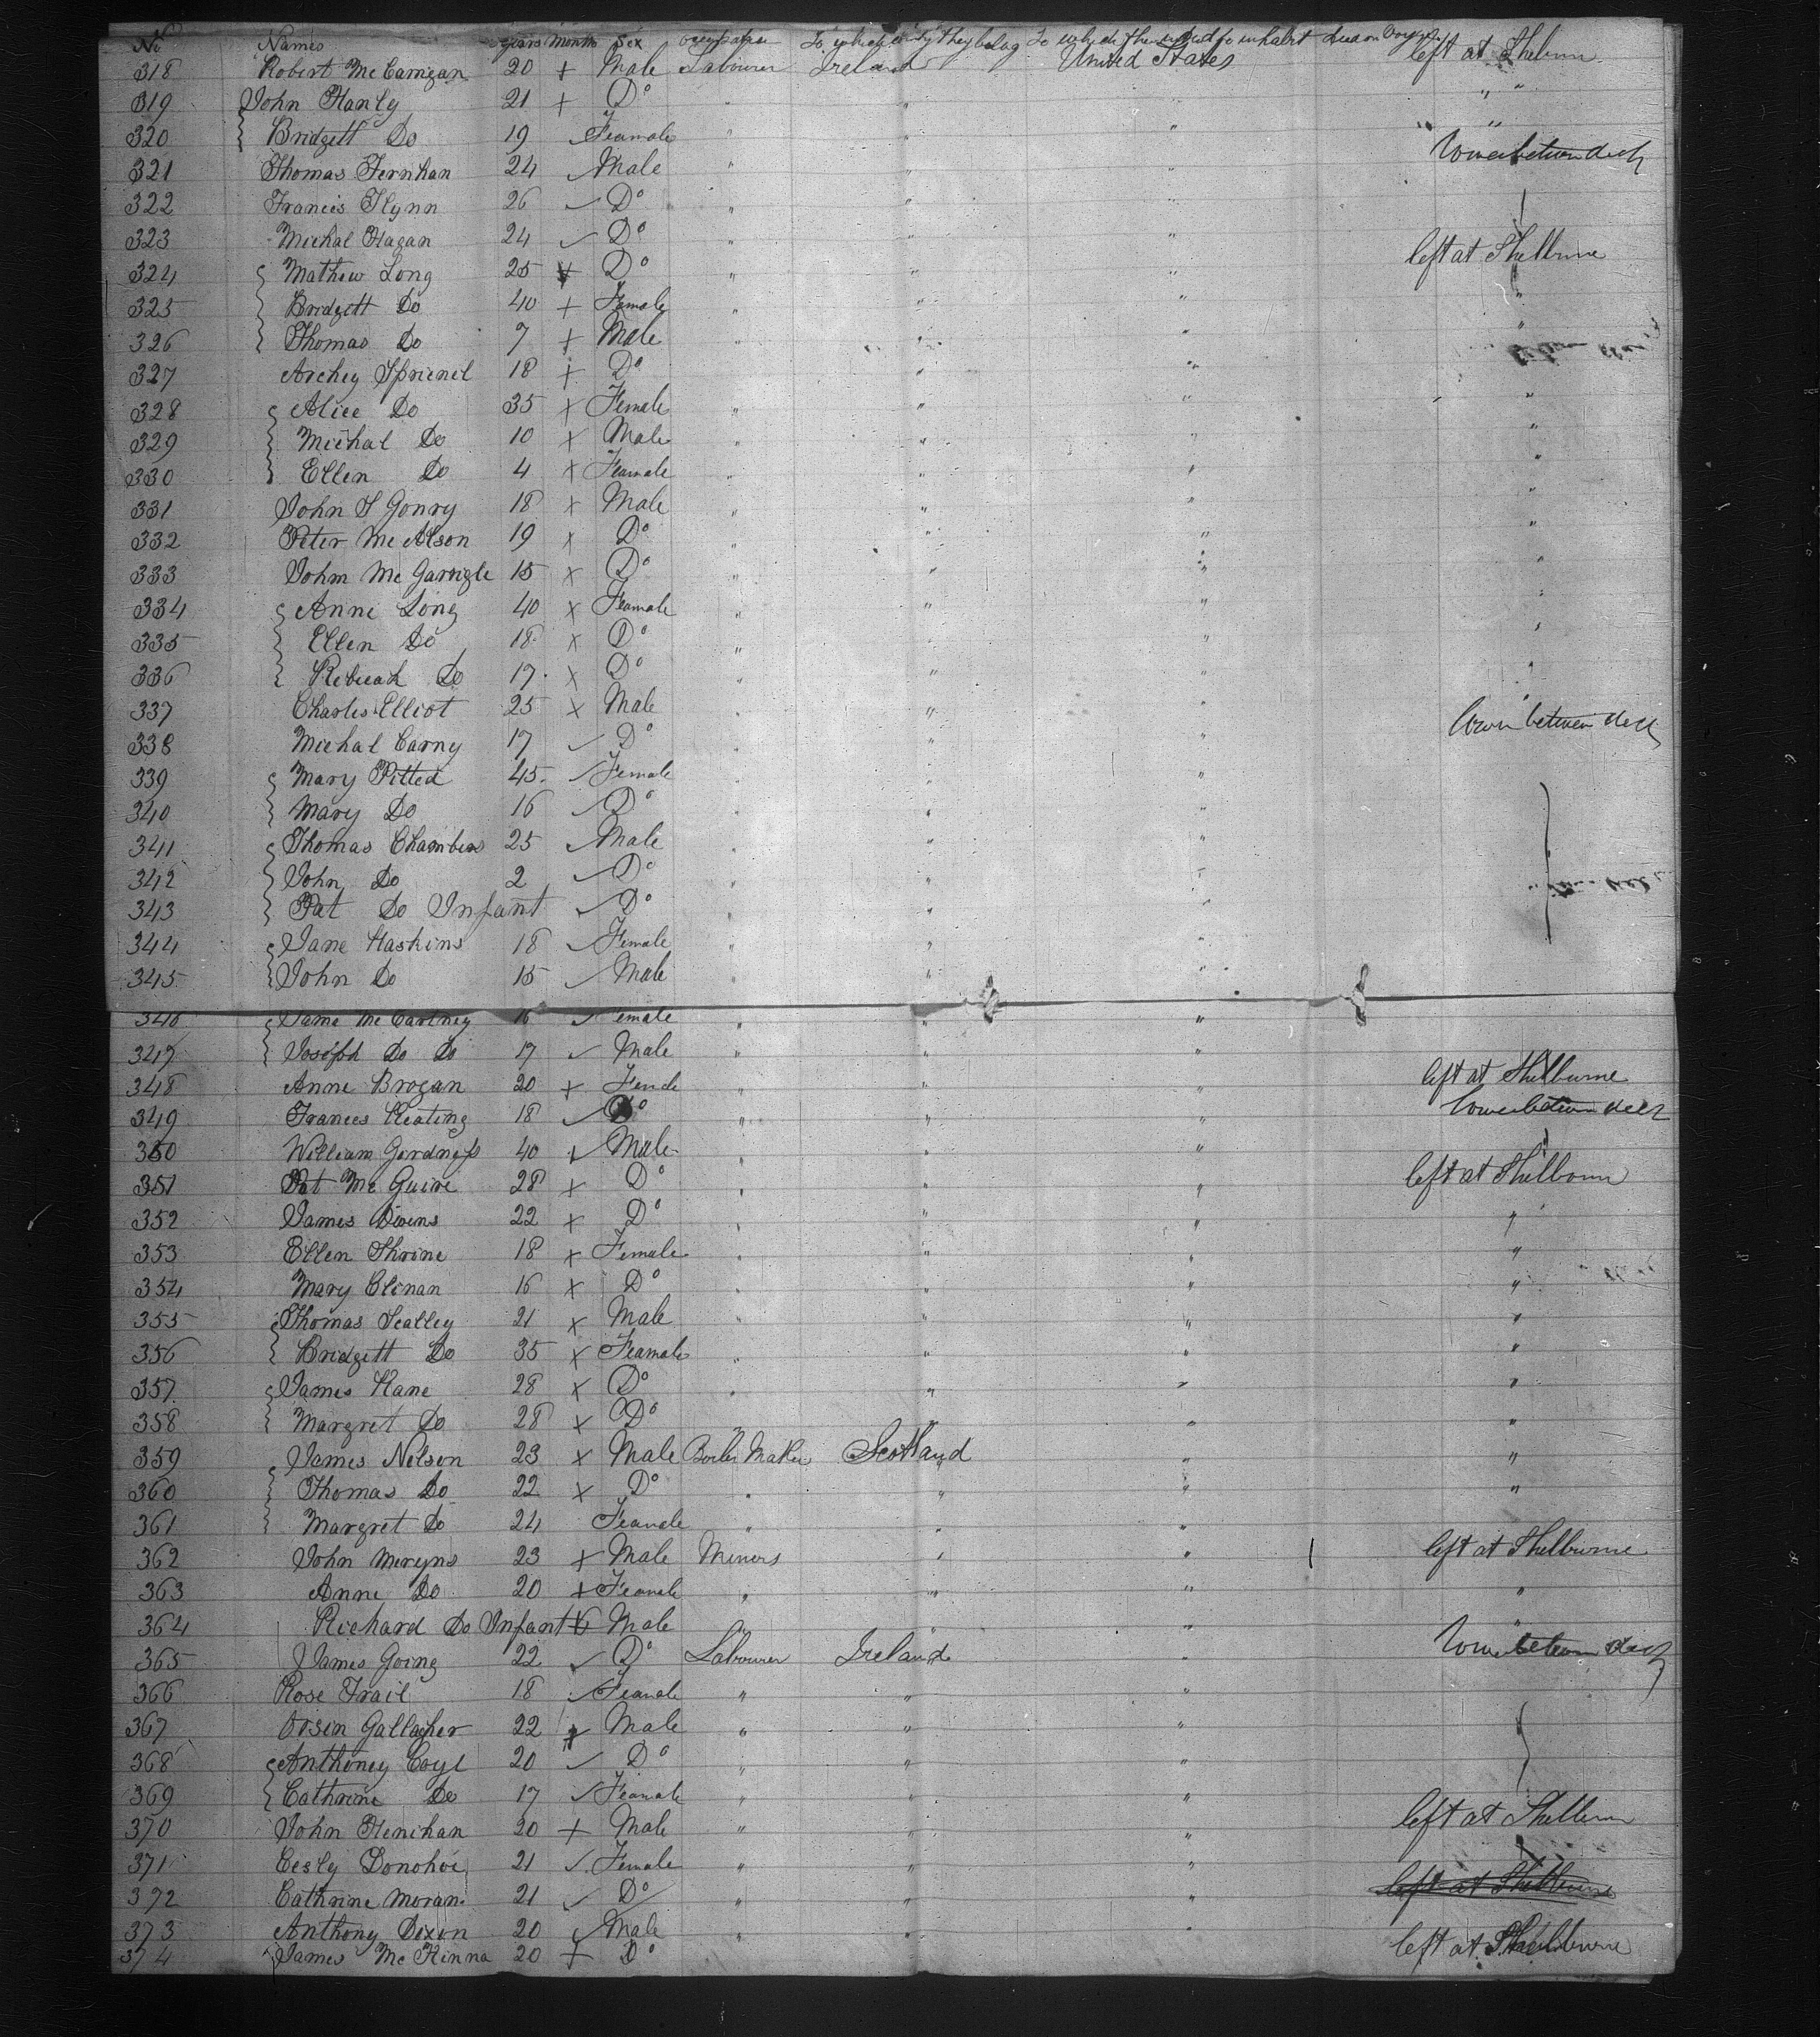 No Names years Month Sex occupation To which cuntry they belong To which they intend to inhabit died on Voyage
318 Robert McCarrigan 20 + Male Labourer Ireland United States left at Shelburn
319 John Hanly 21 + Do " " " "
320 Bridgett Do 19 Feamale " " " " "
321 Thomas Fernhan 24 ✓ Male " " " Lower between deck
322 Francis Flynn 26 ✓ Do " " "
323 Michal Hagan 24 ✓ Do " " "
324 Mathew Long 25 + Do " " " left at Shelburne
325 Bridgett Do 40 + Female " " " "
326 Thomas Do 7 + Male " " " "
327 Archey Sprienel 18 + Do " " "
328 Alice Do 35 x Female " " " "
329 Michal Do 10 x Male " " " "
330 Ellen Do 4 x Feamale " " " "
331 John S Gonry 18 x Male " " " "
332 Peter McAlson 19 x Do " " " "
333 John McGarrigle 15 x Do " " " "
334 Anne Long 40 x Feamale " " " "
335 Ellen Do 18 x Do " " " "
336 Rebicah Do 17 x Do " " " "
337 Charles Elliot 25 x Male " " " "
338 Michal Carny 17 ✓ Do " " " Lower between deck
339 Mary Pitted 45 ✓ Female " " "
340 Mary Do 16 ✓ Do " " "
341 Thomas Chambers 25 ✓ Male " " "
342 John Do 2 ✓ Do " " "
343 Pat Do Infant ✓ Do " " "
344 Jane Haskins 18 ✓ Female " " "
345 John Do 15 ✓ Male " " "
346 Jame McCartney 16 ✓ Female " " "
347 Joseph Do Do 17 ✓ Male " " "
348 Anne Brogan 20 + Female " " " left at Shelburne
349 Frances Keating 18 ✓ Do " " " Lower between deck
350 William Gordness 40 ✓ Male " " "
351 Pat McGuire 28 x Do " " " left at Shelbourn
352 James Divens 22 x Do " " " "
353 Ellen Shrine 18 x Female " " " "
354 Mary Clenan 16 x Do " " " "
355 Thomas Scalley 21 x Male " " " "
356 Bridgett Do 35 x Feamale " " " "
357 James Kane 28 x Do " " " "
358 Margret Do 28 x Do " " " "
359 James Nelson 23 x Male Boiler Maker Scotland " "
360 Thomas Do 22 x Do " " " "
361 Margret Do 24 Feamale " " "
362 John Meryns 23 + Male Miners " " left at Shelburne
363 Anne Do 20 + Feamale " " " "
364 Richard Do Infant 6 Male " " " "
365 James Going 22 ✓ Do Labourer Ireland " Lower between deck
366 Rose Trail 18 ✓ Feamale " " "
367 Ossin Gallagher 22 ✓ Male " " "
368 Anthoney Coyl 20 ✓ Do " " "
369 Cathrine Do 17 ✓ Feamale " " "
370 John Henihan 20 + Male " " " left at Shelburn
371 Cesly Donohoe 21 ✓ Female " " "
372 Cathrine Moran 21 ✓ Do " " " left at Shelburne
373 Anthony Dixon 20 ✓ Male " " "
374 James McKinna 20 + Do left at Shelburne